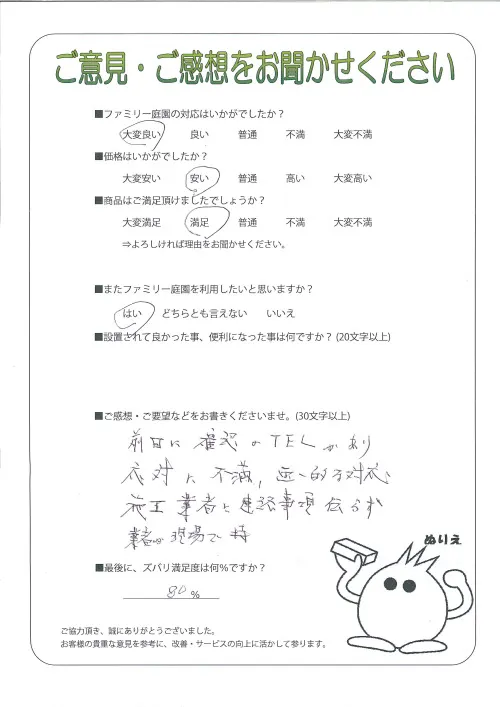 ご意見・ご感想をお聞かせください
■ファミリー庭園の対応はいかがでしたか？
大変良い 良い 普通 不満 大変不満
■価格はいかがでしたか？
大変安い 安い 普通 高い 大変高い
■商品はご満足頂けましたでしょうか？
大変満足 満足 普通 不満 大変不満
⇒よろしければ理由をお聞かせください。
■またファミリー庭園を利用したいと思いますか？
はい どちらとも言えない いいえ
■設置されて良かった事、便利になった事は何ですか？(20文字以上)
■ご感想・ご要望などをお書きくださいませ。(30文字以上)
前日に確認のTELがあり
応対に不満，一方的な対応
施工業者と連絡事項伝わらず
業者は現場で待
ぬりえ
■最後に、ズバリ満足度は何％ですか？
80％
ご協力頂き、誠にありがとうございました。
お客様の貴重な意見を参考に、改善・サービスの向上に活かして参ります。